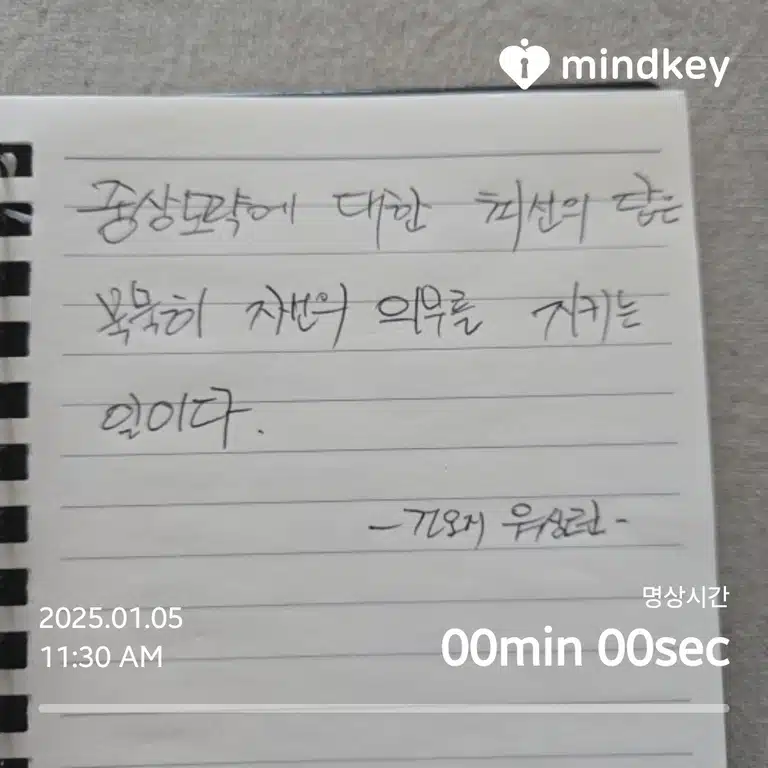 mindkey
중상모략에 대한 최선의 답은
묵묵히 자신의 의무를 지키는
일이다.
- 워싱턴 -
명상시간
2025.01.05
11:30 AM
00min 00sec